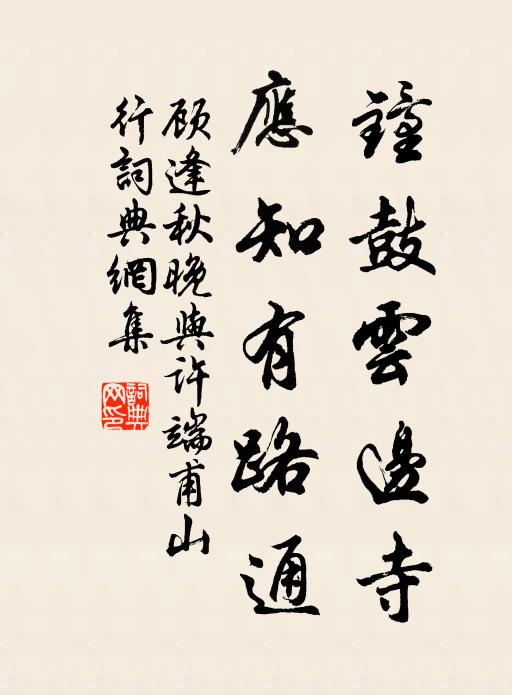 鐘鼓雲邊寺
應知有路通
顾逢秋晚與许端甫山
行詞典網集
詞典網印